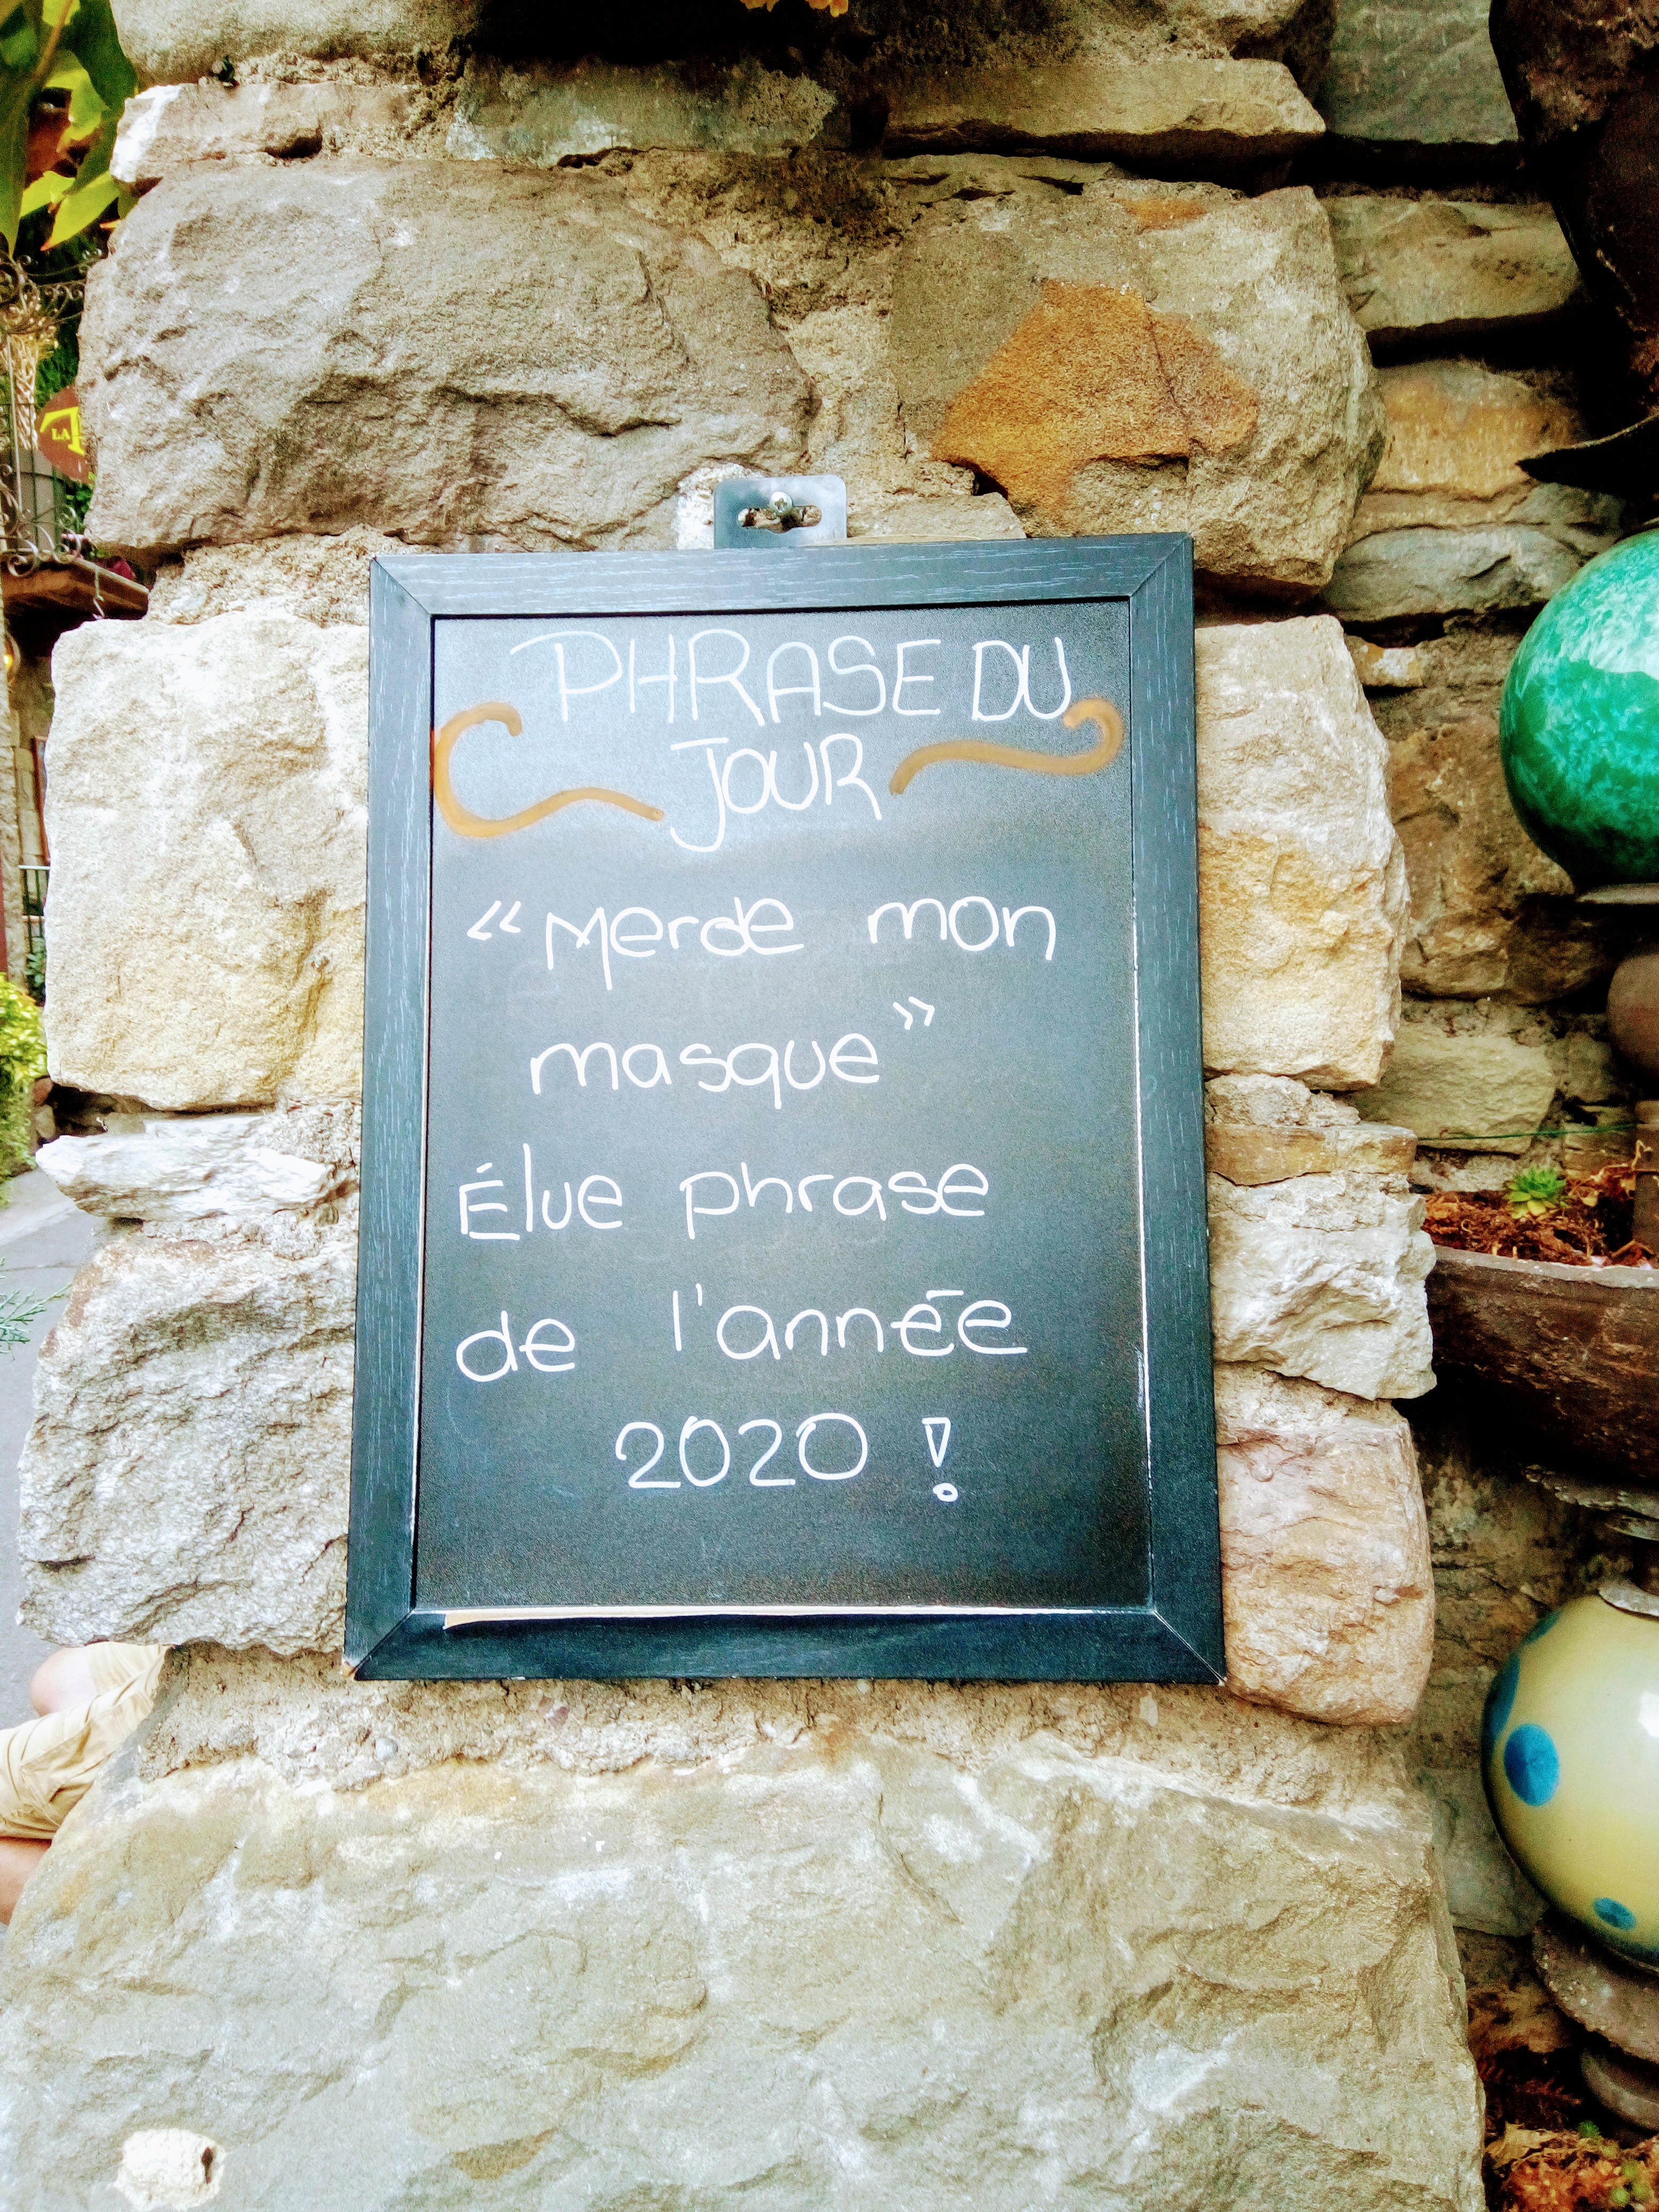 LA
PHRASE DU
JOUR
« Merde mon
masque »
Élue phrase
de l'année
2020 !